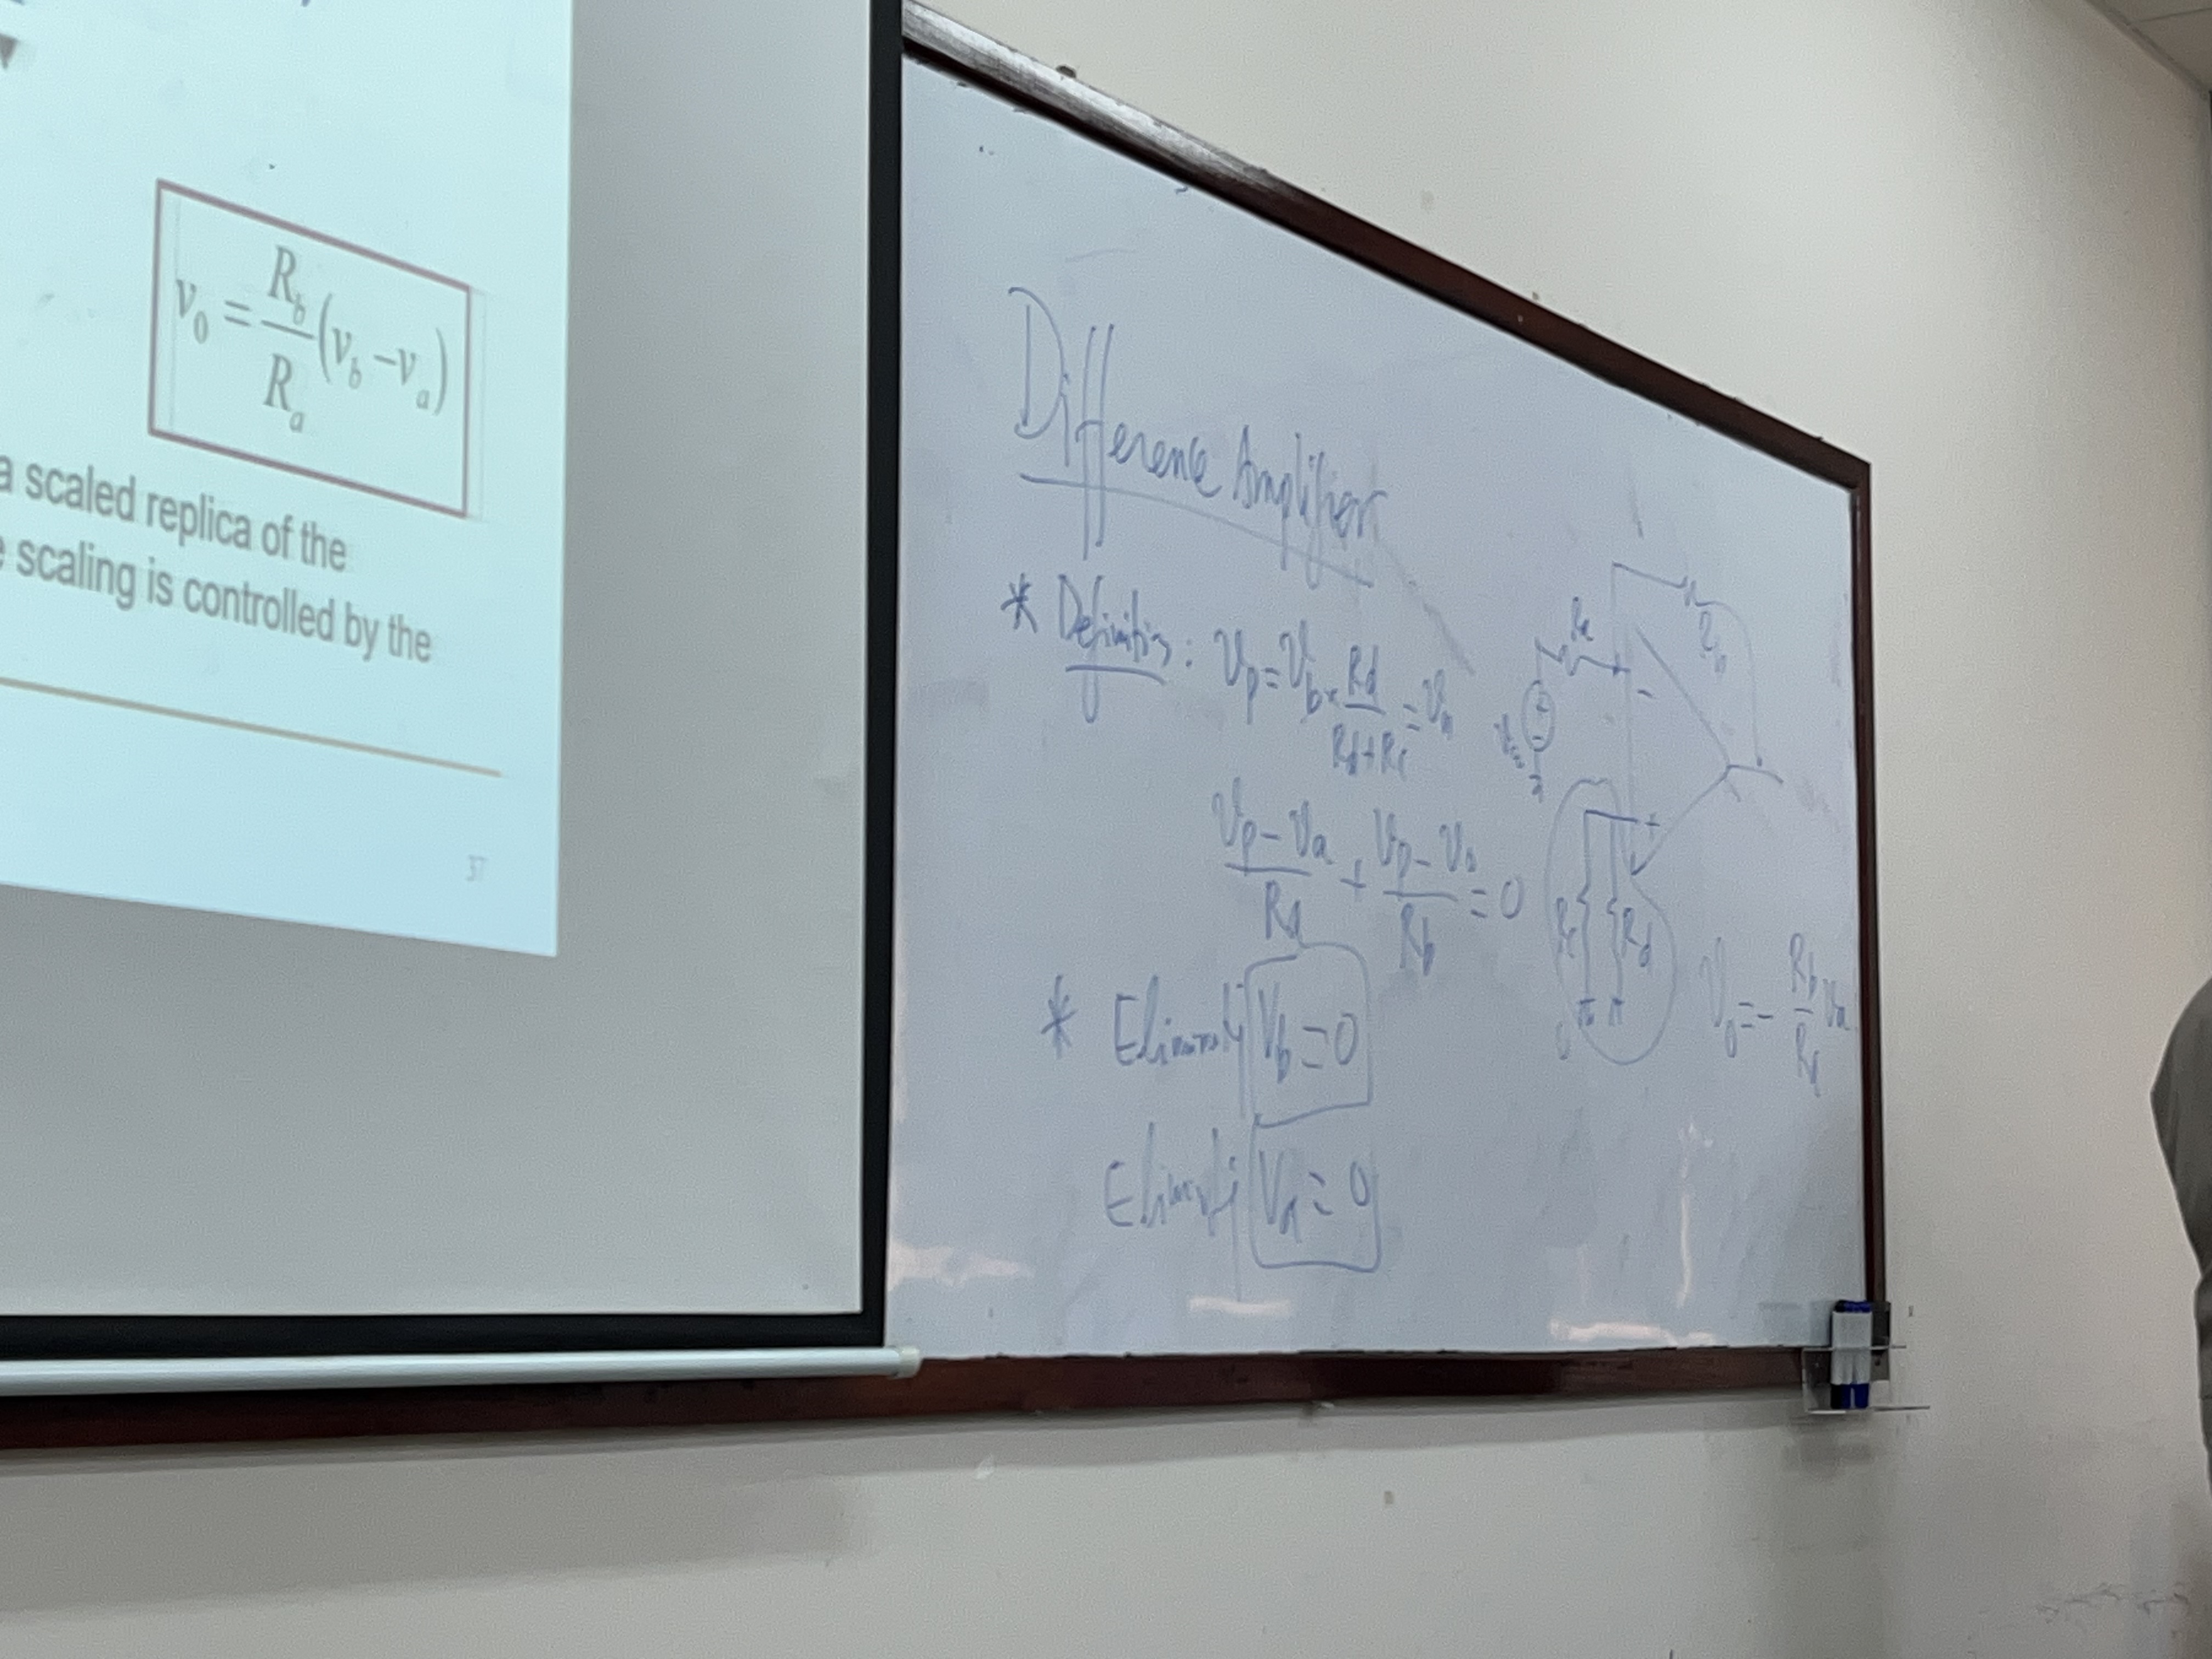 v₀ = R_b/R_a (v_b − v_a)
a scaled replica of the
scaling is controlled by the
37
Difference Amplifier
* Definition : V_p = V_b × R_d/(R_d + R_c) = V_n
(V_p − V_a)/R_a + (V_p − V_o)/R_b = 0
* V_b = 0
V_a = 0
R_a
R_b
−
+
−
+
R_c
R_d
V_o = − R_b/R_a V_a